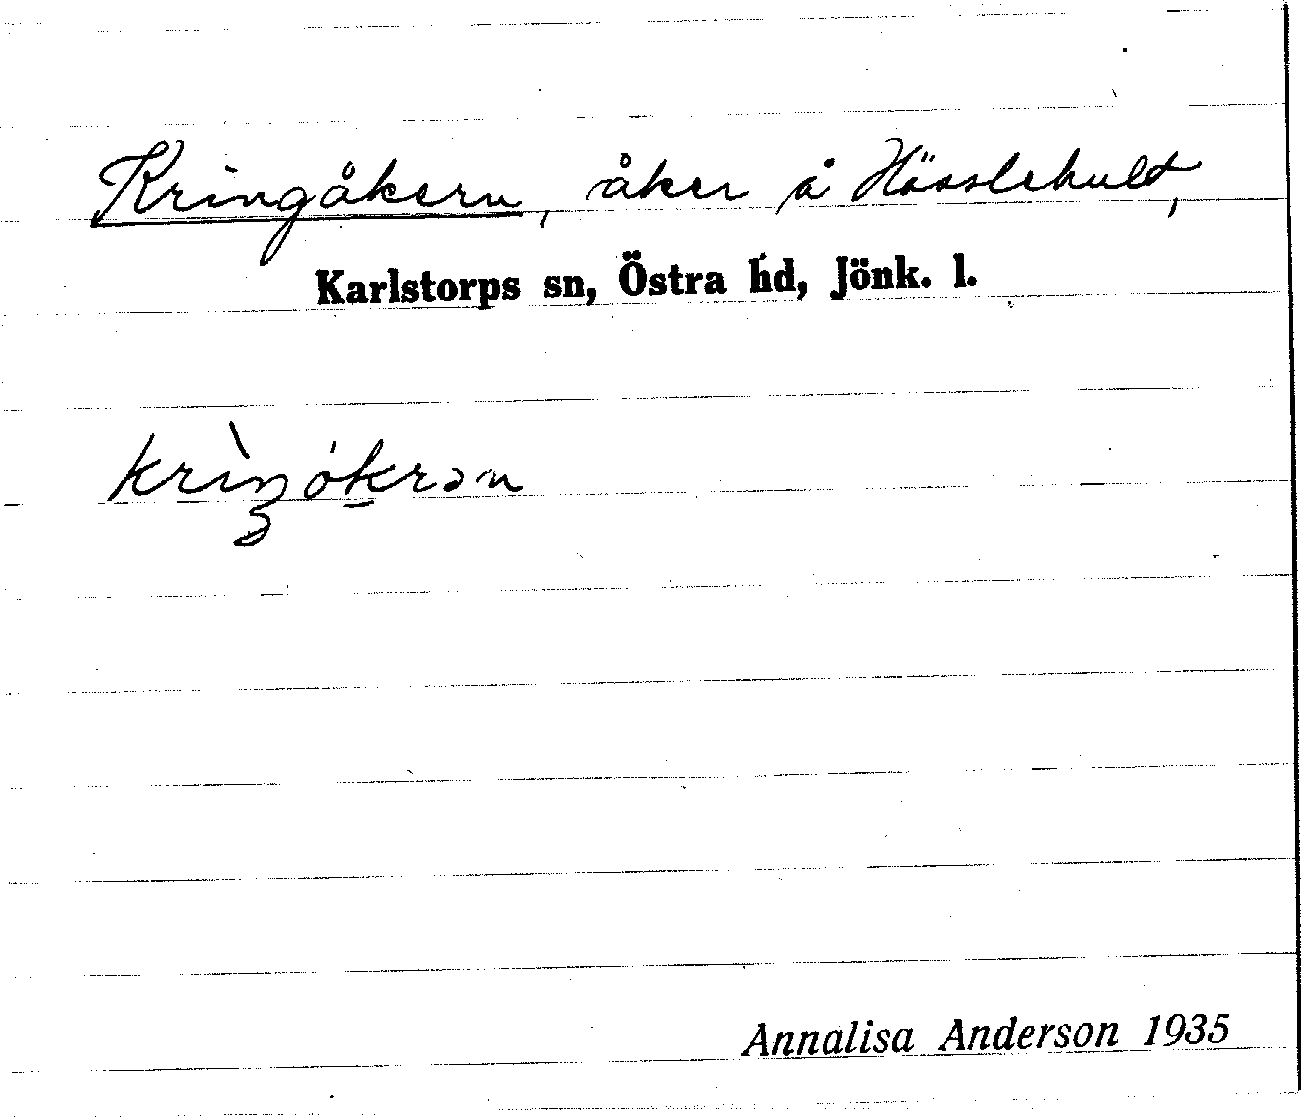 Kringåkern, åker å Hässlehult,
Karlstorps sn, Östra hd, Jönk. l.
krìŋókrən
Annalisa Anderson 1935